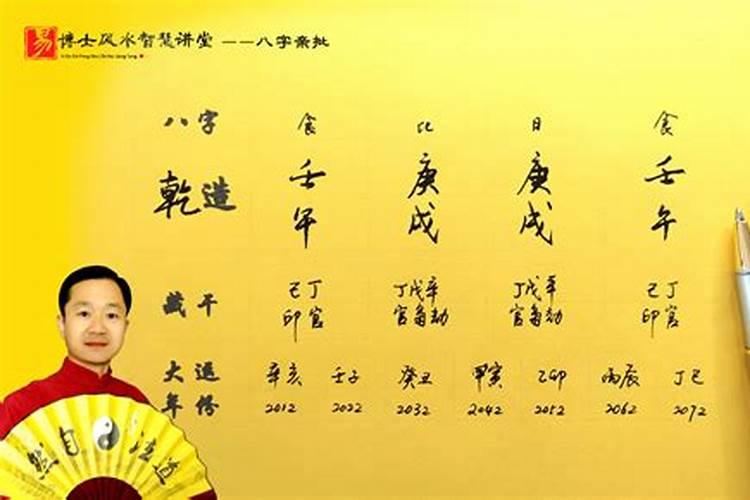 易 博士风水智慧讲堂 ——八字亲批
八字 食 比 日 食
乾造 壬 庚 庚 壬
午 戌 戌 午
藏干 己丁 丁戊辛 丁戊辛 己丁
印官 官枭劫 官枭劫 印官
大运 辛亥 壬子 癸丑 甲寅 乙卯 丙辰 丁巳
年份 2012 2022 2032 2042 2052 2062 2072
道法自然